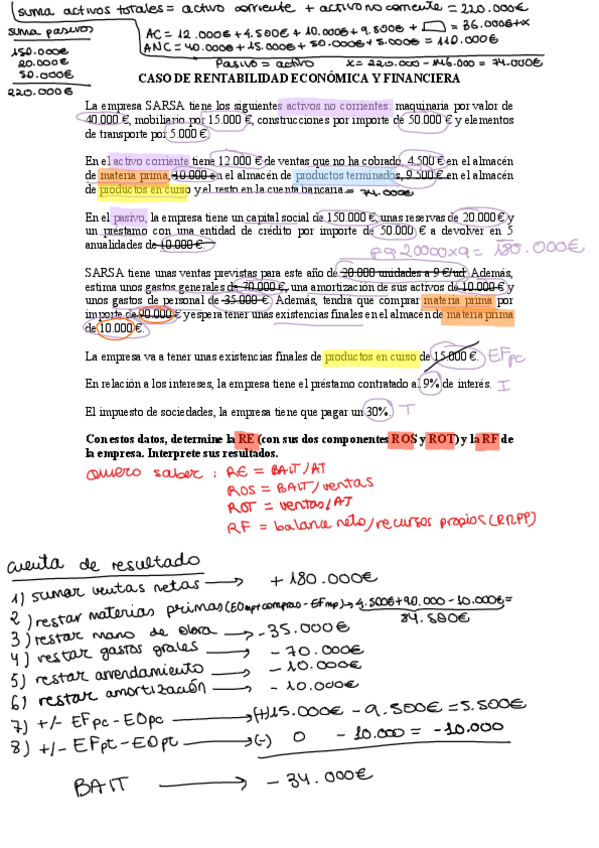 suma activos totales = activo corriente + activo no corriente = 220.000€
suma pasivos
150.000€
20.000€
50.000€
220.000€
AC = 12.000€ + 4.500€ + 10.000€ + 9.500€ + = 36.000€ + x
ANC = 40.000€ + 15.000€ + 50.000€ + 5.000€ = 110.000€
Pasivo = activo x = 220.000 - 146.000 = 74.000€
CASO DE RENTABILIDAD ECONÓMICA Y FINANCIERA
La empresa SARSA tiene los siguientes activos no corrientes: maquinaria por valor de
40.000 €, mobiliario por 15.000 €, construcciones por importe de 50.000 € y elementos
de transporte por 5.000 €.
En el activo corriente tiene 12.000 € de ventas que no ha cobrado, 4.500 € en el almacén
de materia prima, 10.000 € en el almacén de productos terminados, 9.500 € en el almacén
de productos en curso y el resto en la cuenta bancaria = 74.000€
En el pasivo, la empresa tiene un capital social de 150.000 €, unas reservas de 20.000 € y
un préstamo con una entidad de crédito por importe de 50.000 € a devolver en 5
anualidades de 10.000 €.
20000x9 = 180.000€
SARSA tiene unas ventas previstas para este año de 20.000 unidades a 9 €/ud. Además,
estima unos gastos generales de 70.000 €, una amortización de sus activos de 10.000 € y
unos gastos de personal de 35.000 €. Además, tendría que comprar materia prima por
importe de 90.000 € y espera tener unas existencias finales en el almacén de materia prima
de 10.000 €.
La empresa va a tener unas existencias finales de productos en curso de 15.000 €. EFpc
En relación a los intereses, la empresa tiene el préstamo contratado al 9% de interés. I
El impuesto de sociedades, la empresa tiene que pagar un 30%. T
Con estos datos, determine la RE (con sus dos componentes ROS y ROT) y la RF de
la empresa. Interprete sus resultados.
quiero saber : RE = BAIT/AT
ROS = BAIT/ventas
ROT = ventas/AT
RF = balance neto/recursos propios (RRPP)
cuenta de resultado
1) sumar ventas netas → + 180.000€
2) restar materias primas (EOmp+compras-EFmp) → 4.500€+90.000 - 10.000€ =
84.500€
3) restar mano de obra → - 35.000€
4) restar gastos grales → - 70.000€
5) restar arrendamiento → - 10.000€
6) restar amortización → - 10.000€
7) +/- EFpc - EOpc → (+) 15.000€ - 9.500€ = 5.500€
8) +/- EFpt - EOpt → (-) 0 - 10.000 = -10.000
BAIT → - 34.000€